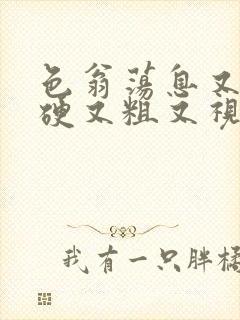 色翁荡息又
硬又粗又视
我有一只胖橘